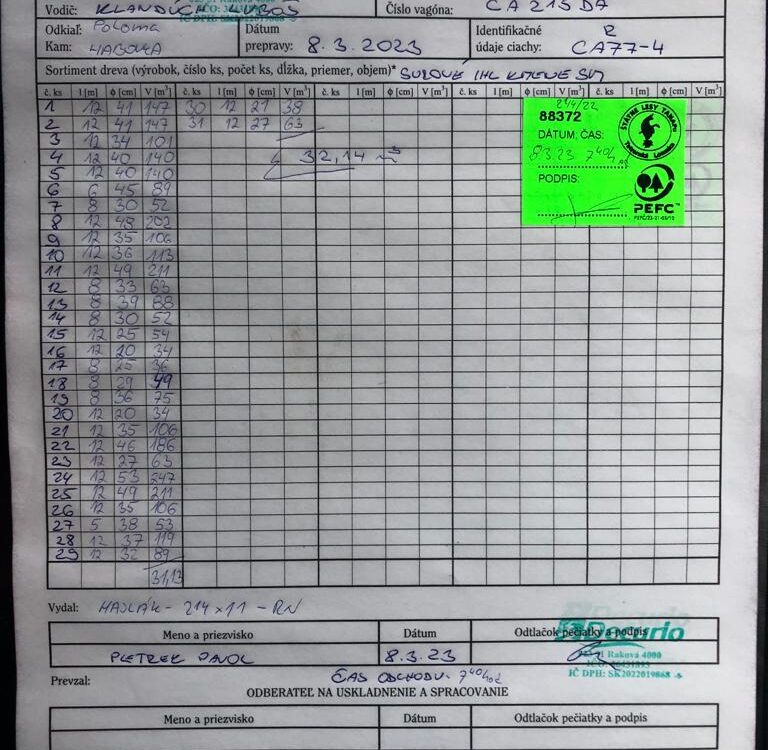 Vodič: KLANDÚCH ĽUBOŠ
Číslo vagóna: CA 213 DA
IČO: 36
IČ DPH: SK2022019868 -5-
Odkiaľ: Poloma
Kam: HABOVKA
Dátum
prepravy: 8.3.2023
Identifikačné R
údaje ciachy: CA77-4
Sortiment dreva (výrobok, číslo ks, počet ks, dĺžka, priemer, objem)* SUROVÉ IHL KMENE SM
č. ks l [m] ϕ [cm] V [m³] č. ks l [m] ϕ [cm] V [m³] č. ks l [m] ϕ [cm] V [m³] č. ks l [m] ϕ [cm] V [m³] č. ks l [m] ϕ [cm] V [m³]
1 12 41 147 30 12 21 38
2 12 41 147 31 12 27 63
3 12 34 101
4 12 40 140 32,14 m³
5 12 40 140
6 6 45 89
7 8 30 52
8 12 48 202
9 12 35 106
10 12 36 113
11 12 49 211
12 8 33 63
13 8 39 88
14 8 30 52
15 12 25 54
16 12 20 34
17 8 25 36
18 8 29 49
19 8 36 75
20 12 20 34
21 12 35 106
22 12 46 186
23 12 27 63
24 12 53 247
25 12 49 211
26 12 35 106
27 5 38 53
28 12 37 119
29 12 32 89
31,13
244/22
88372
DÁTUM, ČAS:
8.3.23 7⁴⁰h
PODPIS:
ŠTÁTNE LESY TANAPu
Tatranská Lomnica
PEFC™
Vydal: HAJLÁK - 214x11 - RN
Meno a priezvisko Dátum Odtlačok pečiatky a podpis
PIETREK PAVOL 8.3.23
Decordo
023 51 Raková 4000
IČ DPH: SK2022019868 -5-
Prevzal: ČAS ODCHODU: 7⁴⁰hod
ODBERATEĽ NA USKLADNENIE A SPRACOVANIE
Meno a priezvisko Dátum Odtlačok pečiatky a podpis